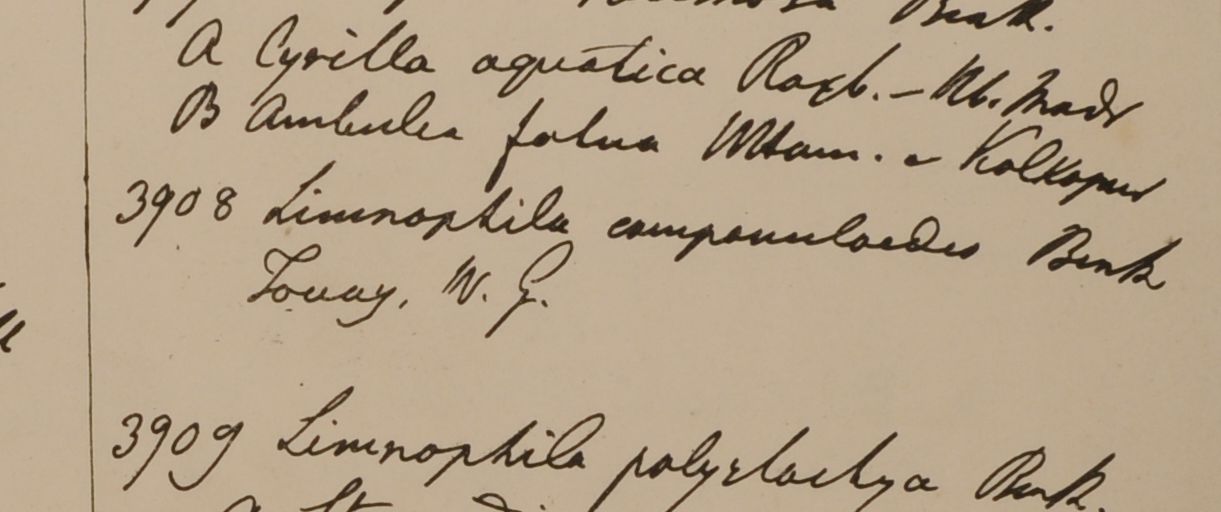 racemosa Benth.
A Cyrilla aquatica Roxb. – Hb. Madr
B Ambulia folva Mham. e Kolkapur
3908 Limnophila campanuloedes Benth
Tovay, W. G.
3909 Limnophila polystachya Benth.